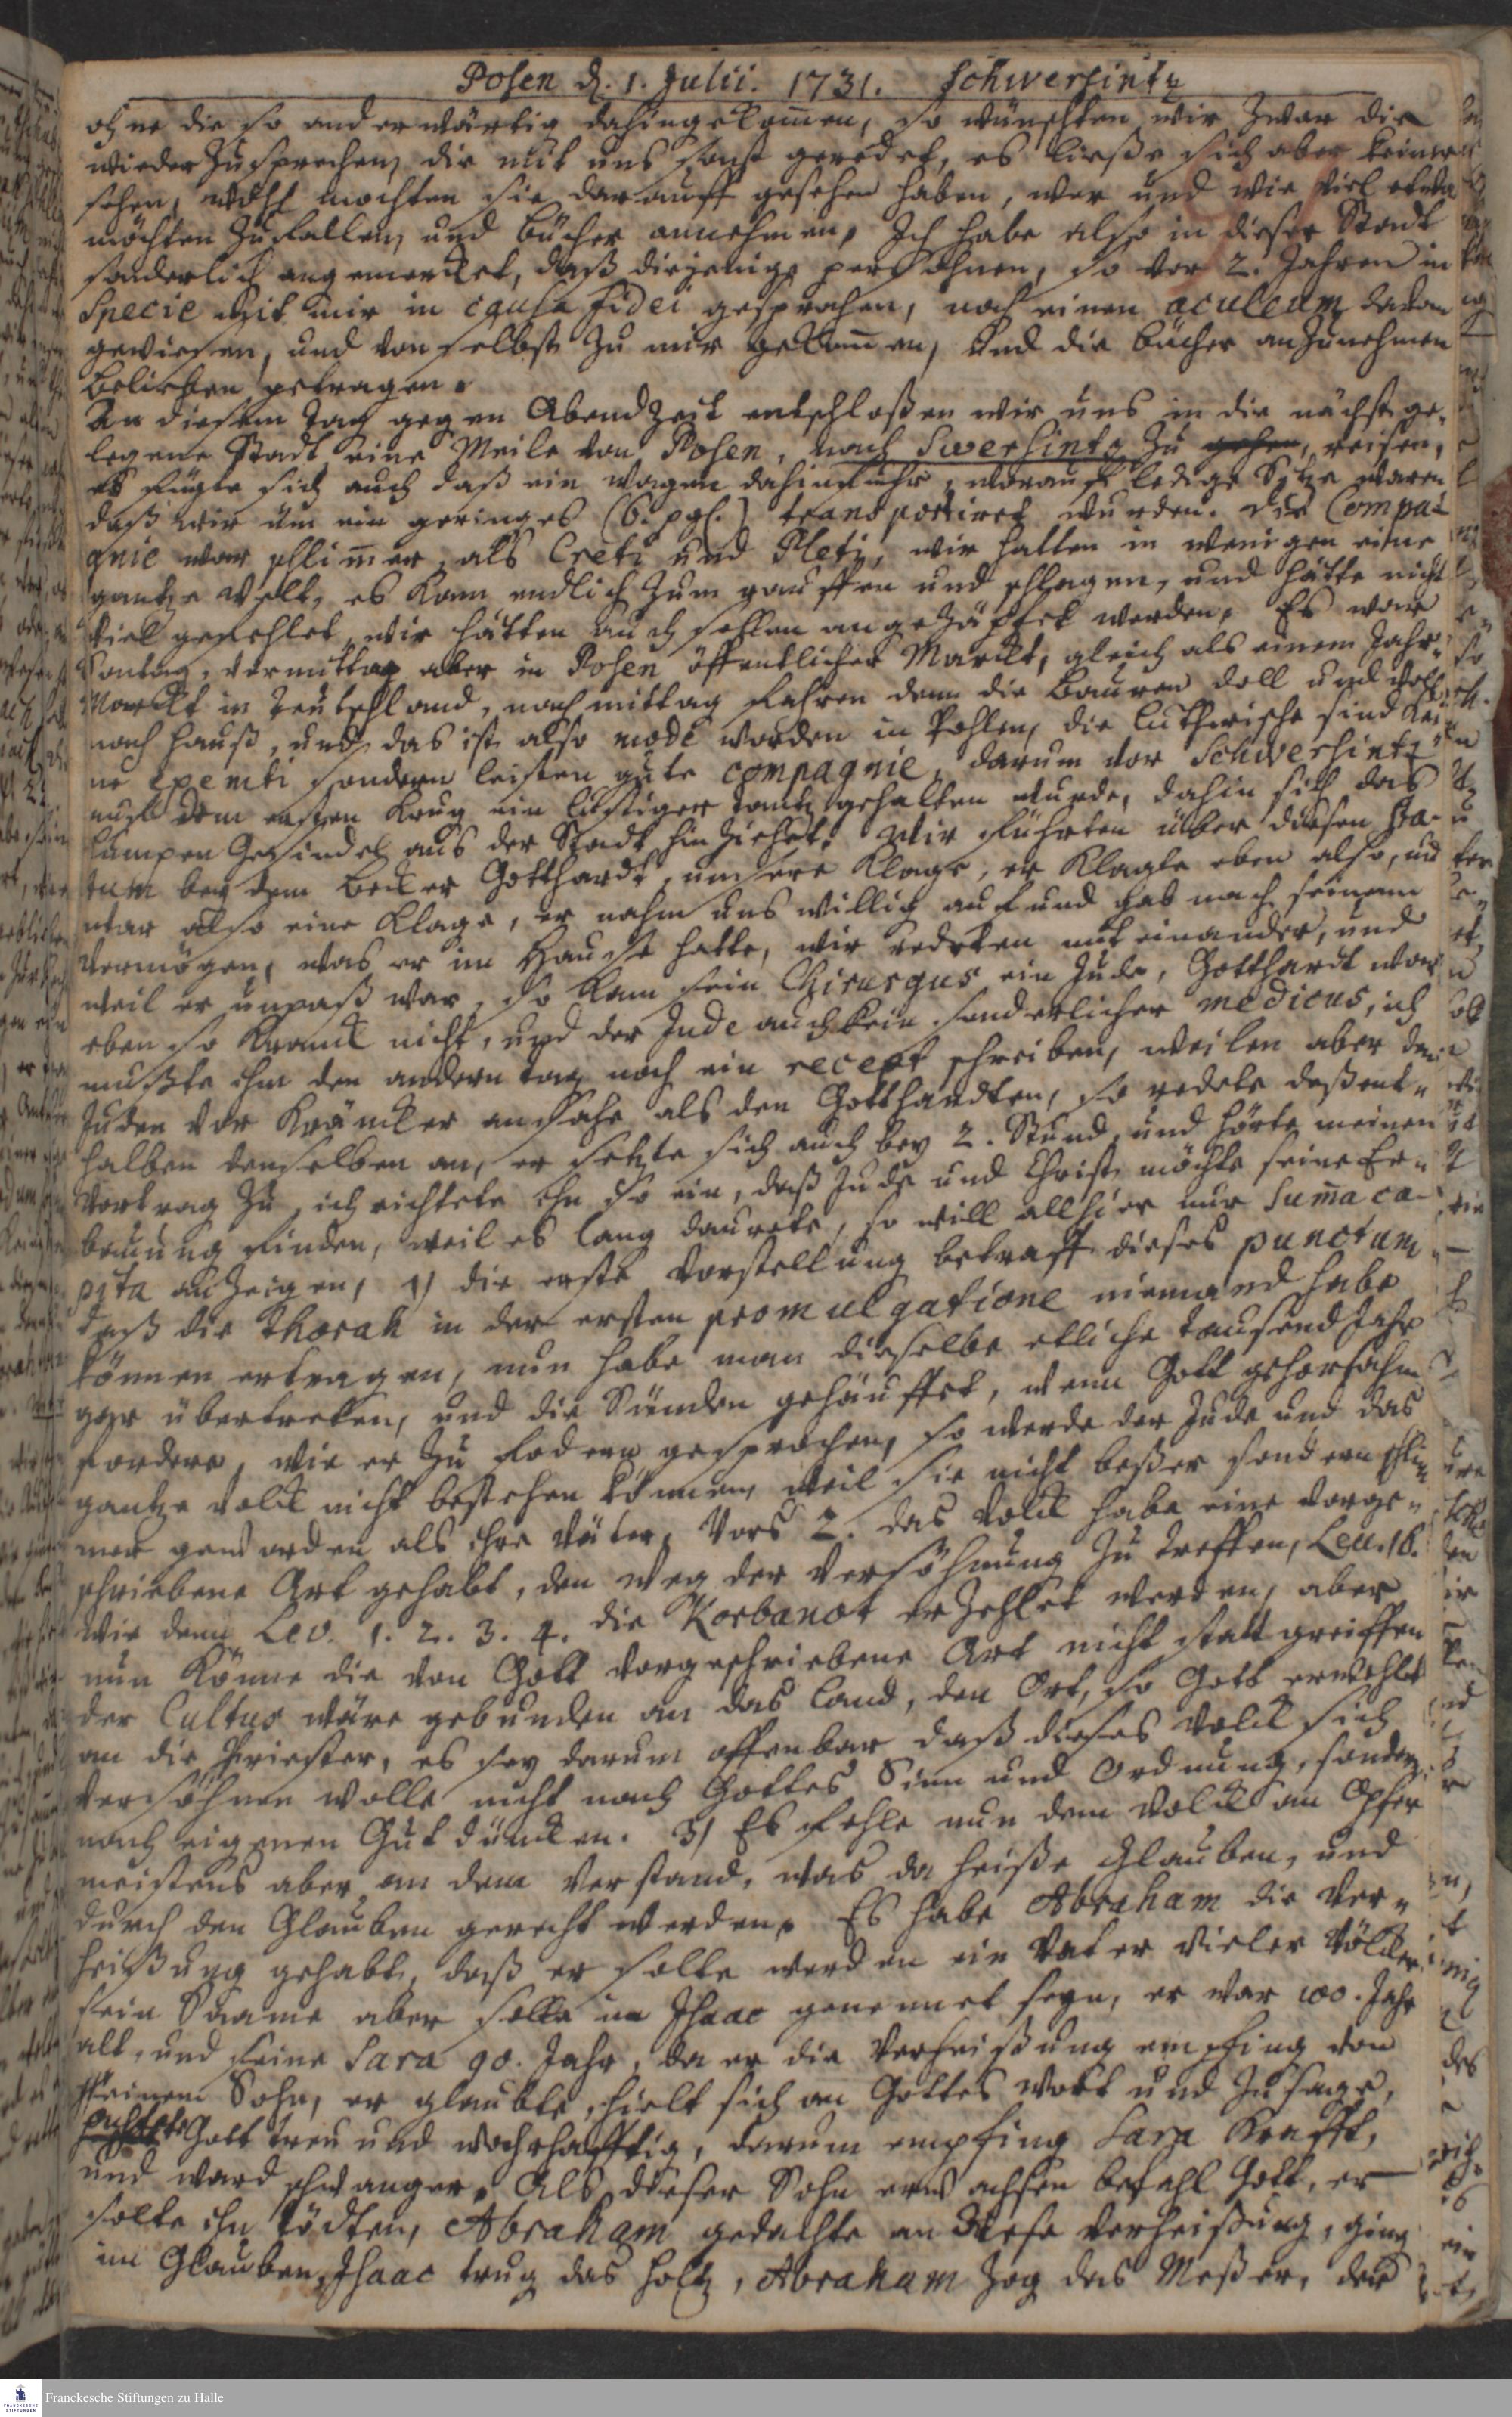 Posen d. 1. Julii. 1731. Schwersintz
ohne die so anderwärtig dahingekom̅en, so wünschten wir zwar die
wieder zusprechen, die mit uns sonst geredet, es ließe sich aber keiner
sehen, wohl mochten sie darauff gesehen haben, wer und wie viel etwa
möchten zufallen, und bücher annehmen, Ich habe also in dieser Stadt
sonderlich angemercket, daß diejenige persohnen, so vor 2. Jahren in
Specie mit mir in causa fidei gesprochen, noch einen aculeum davon
gewiesen, und von selbst zu mir gekom̅en, und die bücher anzunehmen
belieben getragen.
An diesem tag gegen Abendzeit entschloßen wir uns in die nächst ge-
legene Stadt eine Meile von Posen, nach Swersintz zu gehen, reisen,
es fügte sich auch daß ein wagen dahinfuhr, worauff ledige Sitze waren
daß wir um ein geringes (6. pgl.) transportiret wurden. die Compa-
gnie war schlim̅er, als Creti und Pleti, wir hatten in wenigen eine
gantze Welt, es kam endlich zum rauffen und schlagen, und hätte nicht
viel gefehlet, wir hätten auch sollen angezäpfet werden, Es war
Sontag, vormittag aber in Posen öffentlicher Marckt, gleich als einem Jahr-
Marckt in Teutschland, nachmittag fahren denn die Bauren doll und voll
nach hauß, und das ist also mode worden in Pohlen, die lutherische sind kei-
ne exemti sondern leisten gute compagnie, darum vor Schwersintz
auf dem ersten Krug ein lustiger tantz gehalten wurde, dahin sich das
lumpen Gesindel aus der Stadt hinziehet. Wir führten über diesen Sta-
tum bey dem becker Gotthardt, unsere Klage, er Klagte eben also, und
war also eine Klage, er nahm uns willig auf und gab nach seinem
vermögen, was er im Hause hatte, wir redeten mit einander, und
weil er unpaß war, so kam sein Chirurgus ein Jude, Gotthardt war
eben so kranck nicht, und der Jude auch kein sonderlicher medicus, ich
mußte ihm den andern tag noch ein recept schreiben, weilen aber den
Juden vor kräncker ansahe als den Gotthardten, so redete deßent-
halben denselben an, er setzte sich auch bey 2. Stund, und hörte meinen
vortrag zu, ich richtete ihn so ein, daß Jude und Christ möchte seine Er-
bauung finden, weil es lang daurete, so will allhier nur Sum̅a ca-
pita anzeigen, 1) die erste Vorstellung betraff dieses punctum
daß die Thorah in der ersten promulgatione niemand habe
können ertragen, nun habe man dieselbe etliche tausend Jahr
gar übertretten, und die Sünden gehäuffet, wenn Gott gehorsahm
fordere, wie er zu fodern gesprochen, so werde der Jude und das
gantze volck nicht bestehen können, weil sie nicht beßer sondern schlim-
mer geworden als ihre Väter, Vors 2. das Volck habe eine vorge-
schriebene Art gehabt, den weg der Versöhnung zu treffen, Lev. 16.
wie denn Lev. 1. 2. 3. 4. die Korbanot erzehlet werden, aber
nun könne die von Gott vorgeschriebene Art nicht statt greiffen
der Cultus wäre gebunden an das land, den Ort, so Gott erwehlet
an die Priester, es sey darum offenbar daß dieses Volck sich
versöhnen wolle nicht nach Gottes Sinn und Ordnung, sondern
nach eigenen Gutdüncken. 3) Es fehle nun dem Volck an Opfer
meistens aber an dem Verstand, was da heiße Glauben, und
durch den Glauben gerecht werden, Es habe Abraham die Ver-
heißung gehabt, daß er solte werden ein Vater vieler Völcker
sein Saame aber solte in Isaac genennet seyn, er war 100. Jahr
alt, und seine Sara 90. Jahr, da er die Verheißung empfing von
seinem Sohn, er glaubte, hielt sich an Gottes wort und Zusage,
Gott treu und wahrhafftig, darum empfing Sara Krafft,
und ward schwanger, Als dieser Sohn erwachsen befahl Gott, er
solte ihn tödten, Abraham gedachte an diese Verheißung, ging
im Glauben, Isaac trug das holtz, Abraham zog das Meßer, der
Franckesche Stiftungen zu Halle